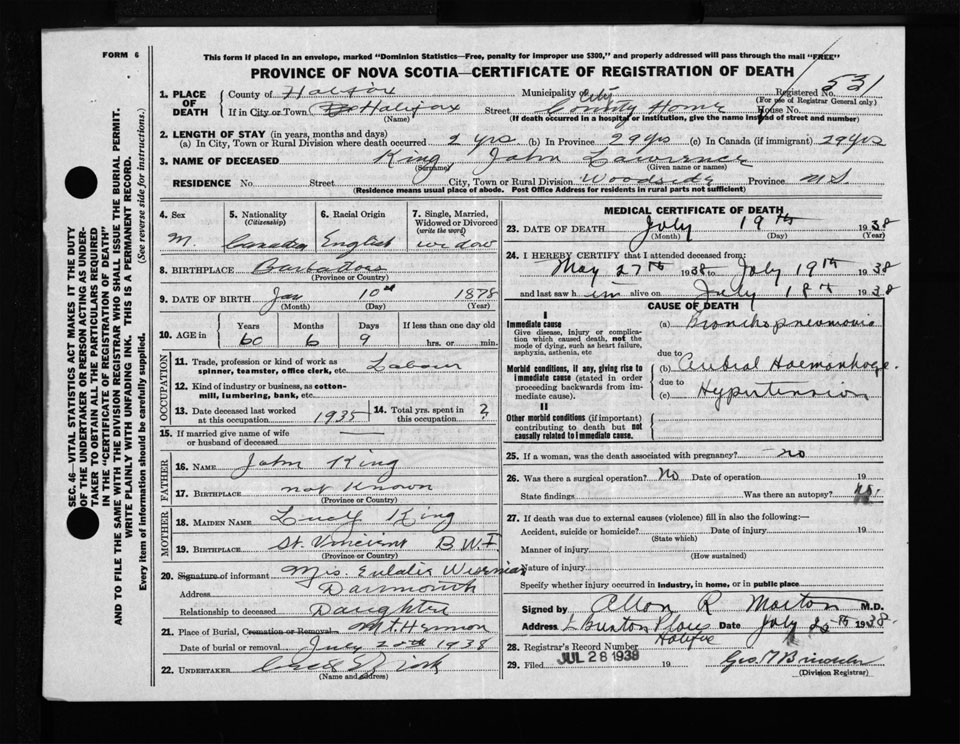 FORM 6
This form if placed in an envelope, marked "Dominion Statistics—Free, penalty for improper use $300," and properly addressed will pass through the mail "FREE"
PROVINCE OF NOVA SCOTIA—CERTIFICATE OF REGISTRATION OF DEATH
SEC. 46—VITAL STATISTICS ACT MAKES IT THE DUTY
OF THE UNDERTAKER OR PERSON ACTING AS UNDER-
TAKER TO OBTAIN ALL THE PARTICULARS REQUIRED
IN THE "CERTIFICATE OF REGISTRATION OF DEATH"
AND TO FILE THE SAME WITH THE DIVISION REGISTRAR WHO SHALL ISSUE THE BURIAL PERMIT.
WRITE PLAINLY WITH UNFADING INK. THIS IS A PERMANENT RECORD.
Every item of information should be carefully supplied. (See reverse side for instructions.)
1. PLACE OF DEATH County of Halifax Municipality of City Registered No. 531
(For use of Registrar General only)
If in City or Town Halifax Street County Home House No.
(Name) (If death occurred in a hospital or institution, give the name instead of street and number)
2. LENGTH OF STAY (in years, months and days)
(a) In City, Town or Rural Division where death occurred 2 yrs (b) In Province 29 yrs (c) In Canada (if immigrant) 29 yrs
3. NAME OF DECEASED King, John Lawrence
(Surname) (Given name or names)
RESIDENCE No. Street City, Town or Rural Division Woodside Province N.S.
(Residence means usual place of abode. Post Office Address for residents in rural parts not sufficient)
4. Sex M.
5. Nationality (Citizenship) Canadian
6. Racial Origin English
7. Single, Married, Widowed or Divorced (write the word) widow
8. BIRTHPLACE Barbadoes
(Province or Country)
9. DATE OF BIRTH Jan 10th 1878
(Month) (Day) (Year)
10. AGE in Years 60 Months 6 Days 9 If less than one day old hrs. or min.
OCCUPATION
11. Trade, profession or kind of work as spinner, teamster, office clerk, etc. Labour
12. Kind of industry or business, as cotton-mill, lumbering, bank, etc.
13. Date deceased last worked at this occupation 1935 14. Total yrs. spent in this occupation ?
15. If married give name of wife or husband of deceased —
FATHER
16. NAME John King
17. BIRTHPLACE not Known
(Province or Country)
MOTHER
18. MAIDEN NAME Lucy King
19. BIRTHPLACE St. Vincent B.W.I.
(Province or Country)
20. Signature of informant Mrs. Eulalie
Address Dartmouth
Relationship to deceased Daughter
21. Place of Burial, Cremation or Removal Mt. Hermon
Date of burial or removal July 20th 1938
22. UNDERTAKER
(Name and address)
MEDICAL CERTIFICATE OF DEATH
23. DATE OF DEATH July 19th 1938
(Month) (Day) (Year)
24. I HEREBY CERTIFY that I attended deceased from:
May 27th 1938 to July 19th 1938
and last saw him alive on July 18th 1938
CAUSE OF DEATH
I
Immediate cause
Give disease, injury or complication which caused death, not the mode of dying, such as heart failure, asphyxia, asthenia, etc
(a) Bronchopneumonia
due to
Morbid conditions, if any, giving rise to immediate cause (stated in order proceeding backwards from immediate cause).
(b) Cerebral Haemorrhage
due to
(c) Hypertension
II
Other morbid conditions (if important) contributing to death but not causally related to immediate cause.
25. If a woman, was the death associated with pregnancy? no
26. Was there a surgical operation? no Date of operation 19
State findings Was there an autopsy?
27. If death was due to external causes (violence) fill in also the following:—
Accident, suicide or homicide? Date of injury 19
(State which)
Manner of injury
(How sustained)
Nature of injury
Specify whether injury occurred in industry, in home, or in public place
Signed by Allon R Morton M.D.
Address Halifax Date July 20th 1938
28. Registrar's Record Number
29. Filed JUL 28 1938 19
(Division Registrar)